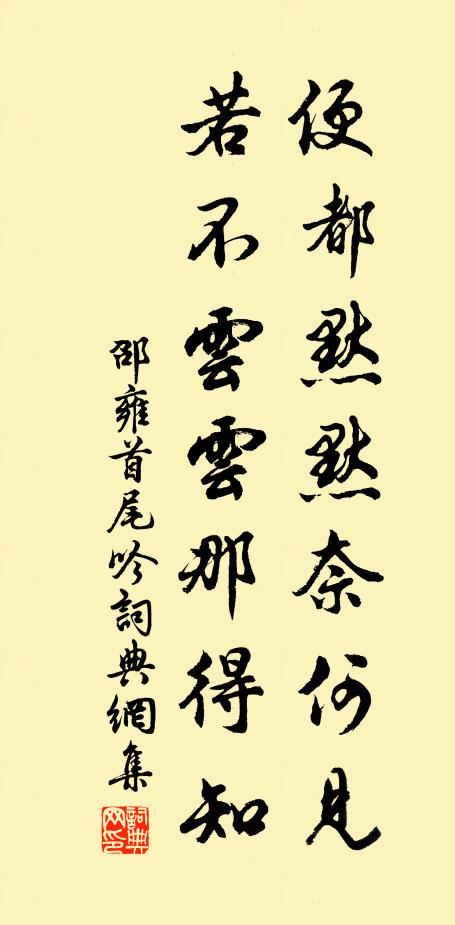 便都默默奈何見
若不雲雲那得知
邵雍首尾吟詞典網集
詞典网印